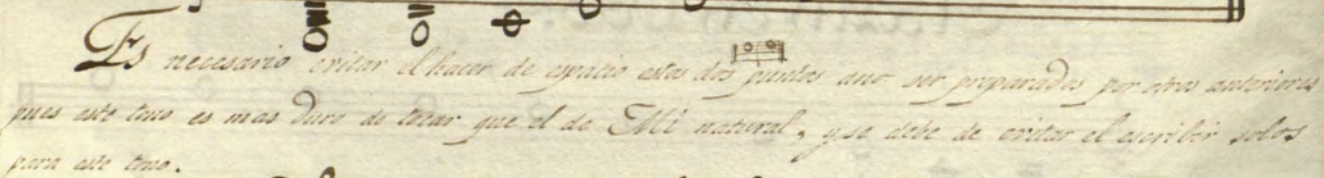 Es necesario evitar el hacer de espacio estos dos puntos a no ser preparados por otros anteriores
pues este tono es mas duro de tocar que el de Mi natural, y se debe de evitar el escribir solos
para este tono.